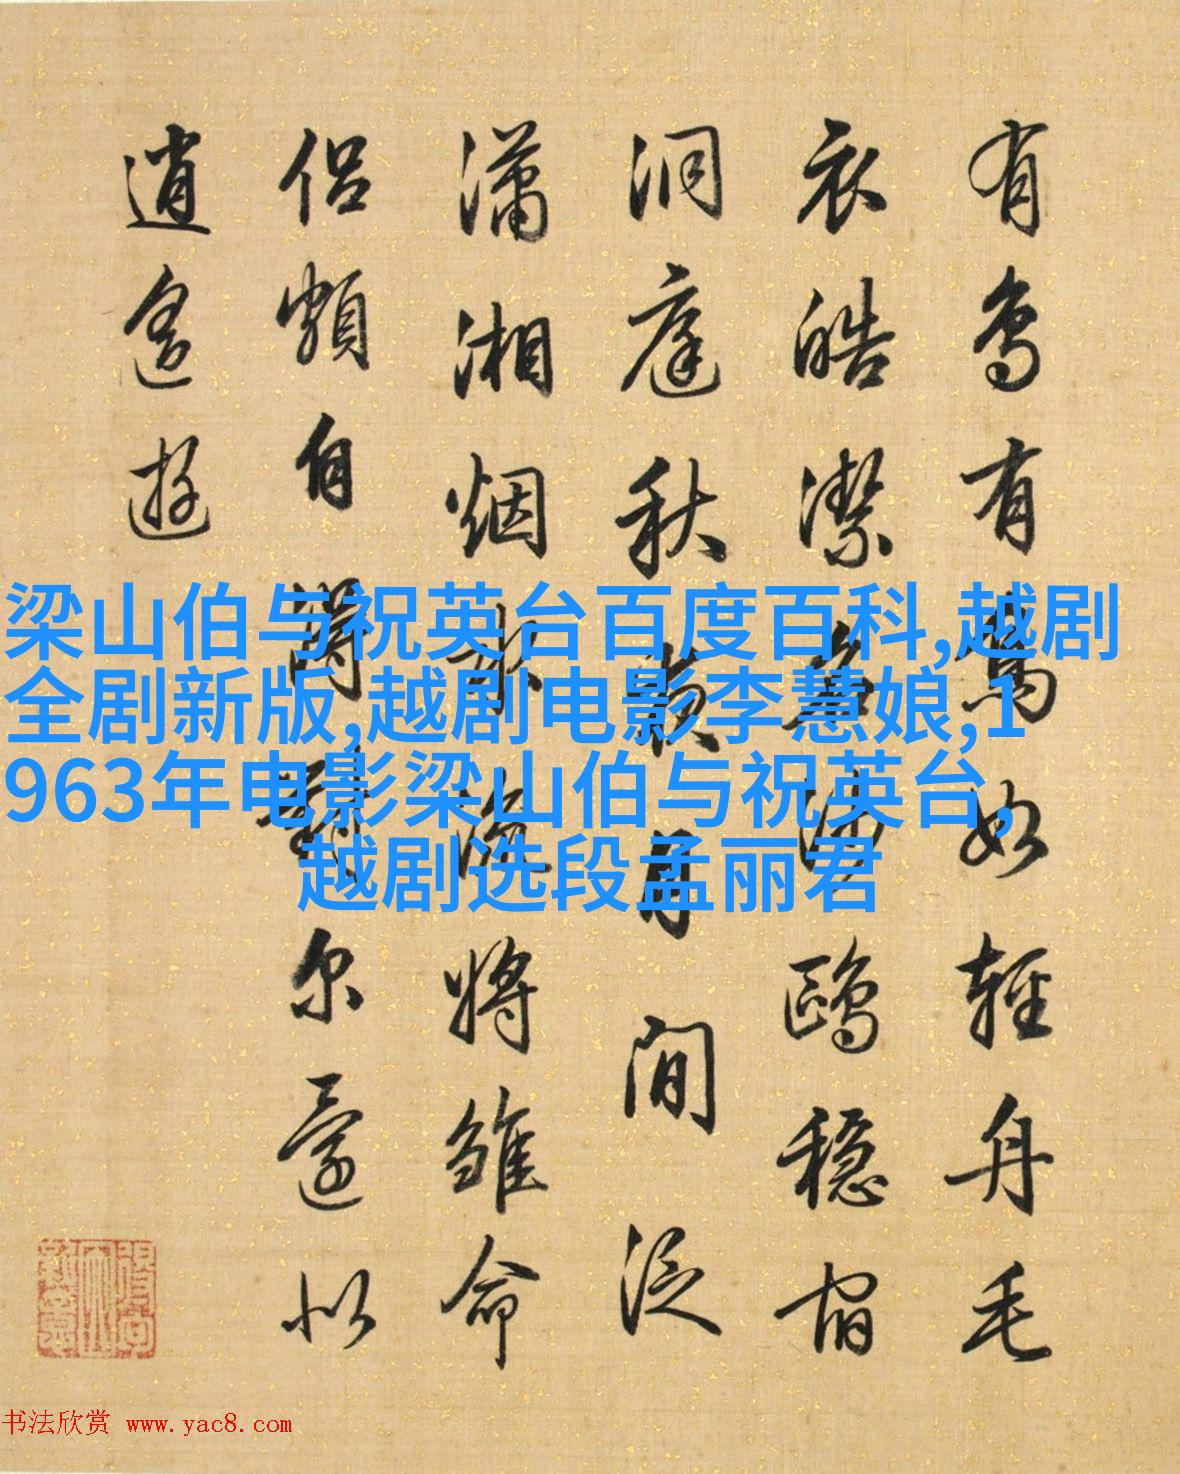 有鳥有如輕舟毛
衣皓潔沙鷗穩宿
洞庭秋月間泛
瀟湘烟深將雛命
侶頻自尔以
逍遙遊
梁山伯与祝英台百度百科,越剧
全剧新版,越剧电影李慧娘,1
963年电影梁山伯与祝英台,
越剧选段孟丽君
书法欣赏 www.yac8.com